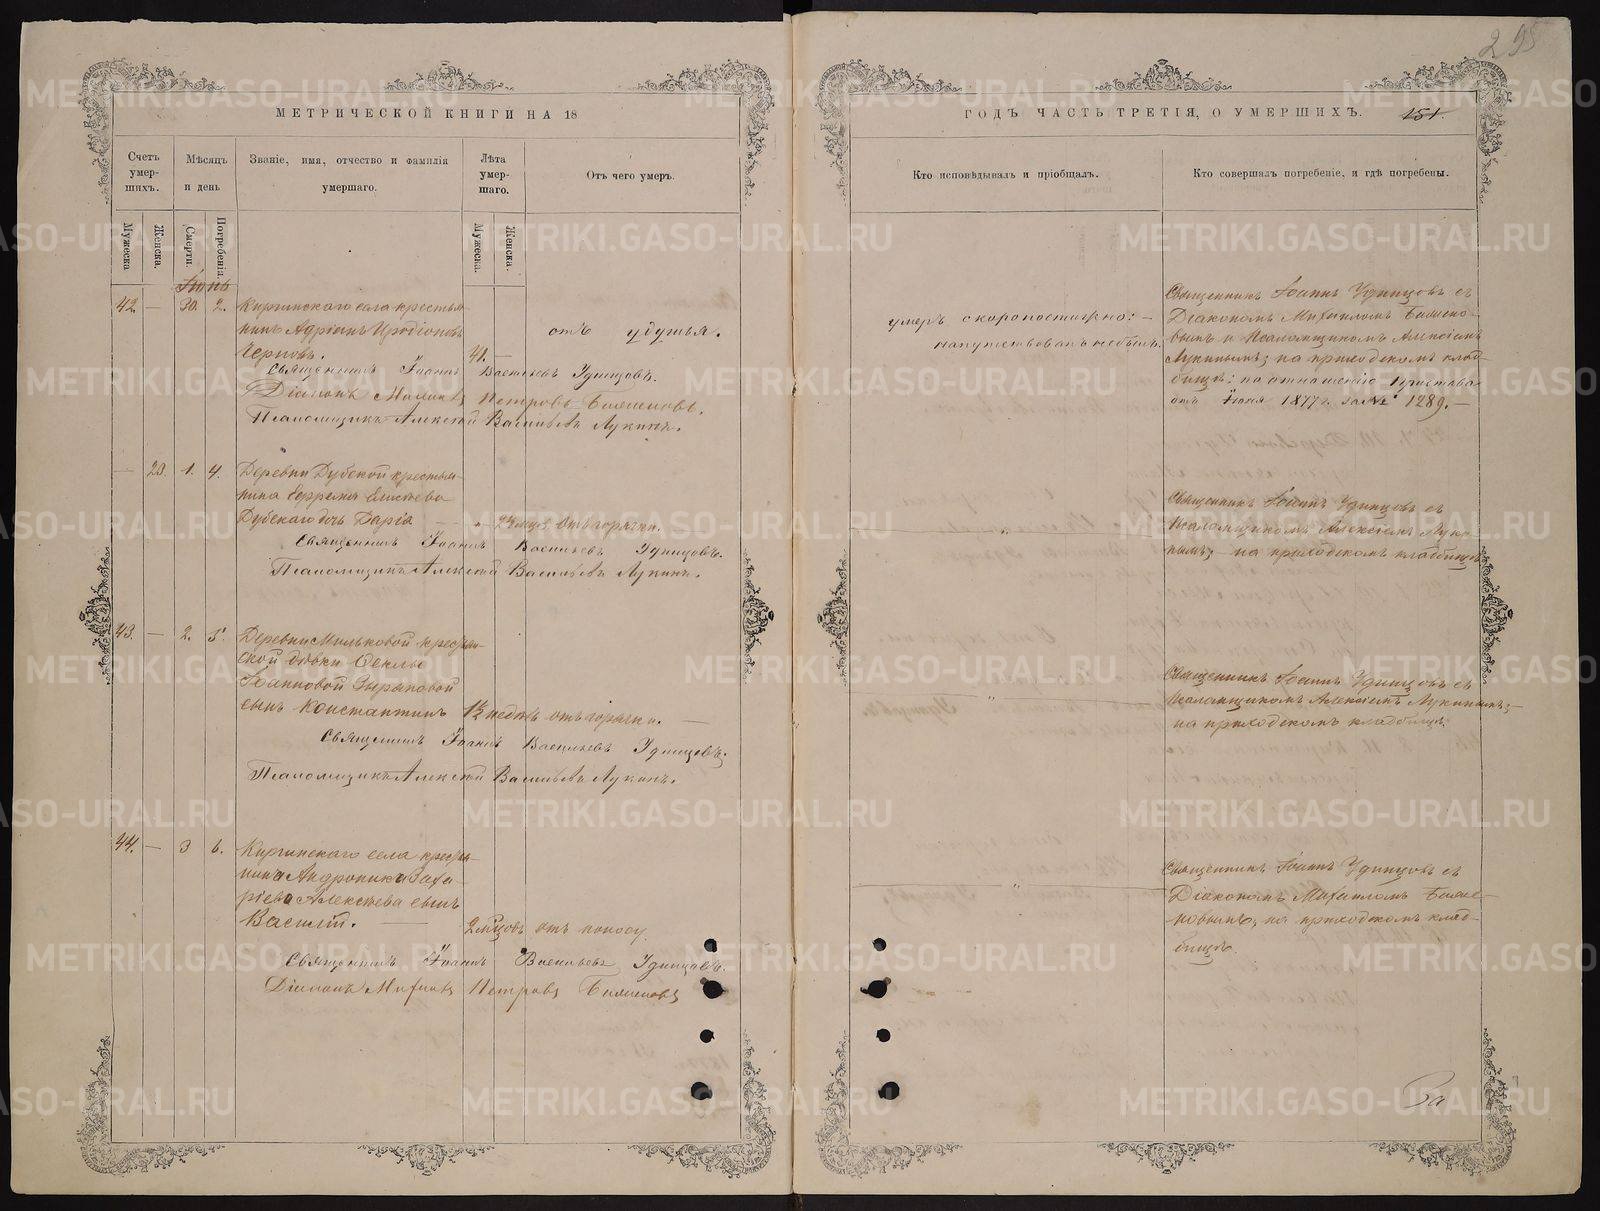 295
МЕТРИЧЕСКОЙ КНИГИ НА 18
Счетъ умер- шихъ.
Мѣсяцъ и день
Званіе, имя, отчество и фамилія умершаго.
Лѣта умер- шаго.
Отъ чего умеръ.
Мужеска
Женска.
Смерти.
Погребенія.
Мужеска.
Женска.
Іюнь
42. — 30. 2. Киргинскаго села крестья-
нинъ Адріанъ Иродіоновъ
отъ удушья.
Черновъ. 41. —
Священникъ Іоаннъ Васильевъ Удинцовъ.
Діаконъ Михаилъ Петровъ
Псаломщикъ Алексій Васильевъ Лукинъ.
— 23. 1. 4. Деревни Дубской крестья-
нина Ефрема Елисѣева
Дубскаго дочь Дарія отъ горячки.
Священникъ Іоаннъ Васильевъ Удинцовъ.
Псаломщикъ Алексій Васильевъ Лукинъ.
43. — 2. 5. Деревни Мильковой крестьян-
ской дѣвки Ѳеклы
Іоанновой Зыряновой
сынъ Константинъ отъ горячки. —
Священникъ Іоаннъ Васильевъ Удинцовъ.
Псаломщикъ Алексій Васильевъ Лукинъ.
44. — 3 6. Киргинскаго села крестья-
нина Андроника Заха-
ріева Алексѣева сынъ
Василій. — 2 мѣсцовъ отъ поносу
Священникъ Іоаннъ Васильевъ Удинцовъ.
Діаконъ Михаилъ Петровъ
ГОДЪ ЧАСТЬ ТРЕТІЯ, О УМЕРШИХЪ. 151.
Кто исповѣдывалъ и пріобщалъ.
Кто совершалъ погребеніе, и гдѣ погребены.
умеръ скоропостижно: —
напутствованъ не былъ.
Священникъ Іоаннъ Удинцовъ съ
Діакономъ Михаиломъ
и Псаломщикомъ Алексіемъ
Лукинымъ; на приходскомъ клад-
бищѣ: по отношенію Пристава
отъ Іюня 1877 г. за № 1289. —
Священникъ Іоаннъ Удинцовъ съ
Псаломщикомъ Алексіемъ Луки-
нымъ; на приходскомъ кладбищѣ
Священникъ Іоаннъ Удинцовъ съ
Псаломщикомъ Алексіемъ Лукинымъ; —
на приходскомъ кладбищѣ.
Священникъ Іоаннъ Удинцовъ съ
Діакономъ Михаиломъ
на приходскомъ клад-
бищѣ
За
METRIKI.GASO-URAL.RU